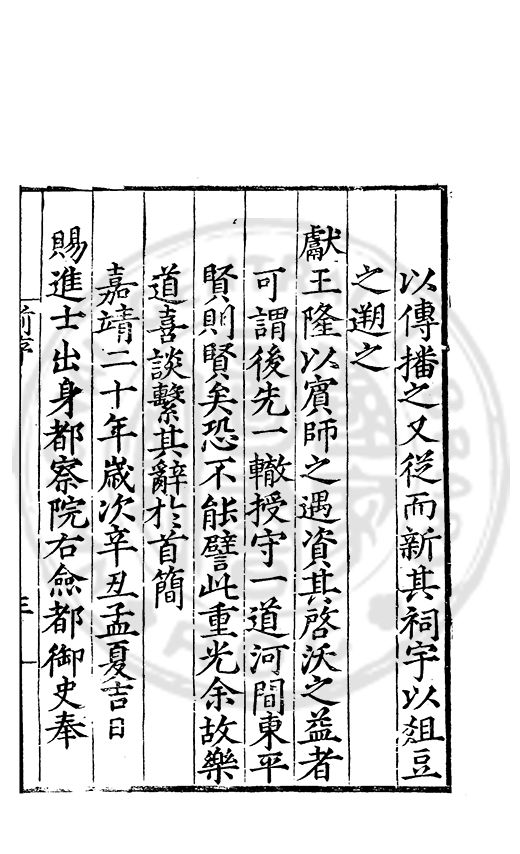 以傳播之又從而新其祠宇以俎豆
之遡之
獻王隆以賓師之遇資其啓沃之益者
可謂後先一轍授守一道河間東平
賢則賢矣恐不能譬此重光余故樂
道喜談繫其辭於首簡
嘉靖二十年歲次辛丑孟夏吉日
賜進士出身都察院右僉都御史奉
前序
三